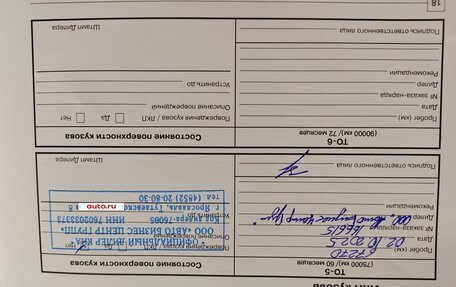 ТО-5
(75000 км) / 60 месяцев
Пробег (км) 67270
Дата 02.10.2025
№ заказа-наряда
Дилер
Рекомендации
Подпись ответственного лица
Нет
Устранить до
Состояние поверхности кузова
ОФИЦИАЛЬНЫЙ ДИЛЕР КИА
ООО «АВТО БИЗНЕС ЦЕНТР ГРУПП»
Код дилера-76005 ИНН 7602033373
г. Ярославль, Тутаевско
тел. (4852) 20-80-30
auto.ru
ТО-6
(90000 км) / 72 месяцев
Пробег (км)
Дата
№ заказа-наряда
Дилер
Рекомендации
Подпись ответственного лица
Состояние поверхности кузова
Повреждения кузова / ЛКП Да Нет
Описание повреждений
Устранить до
Штамп Дилера
18